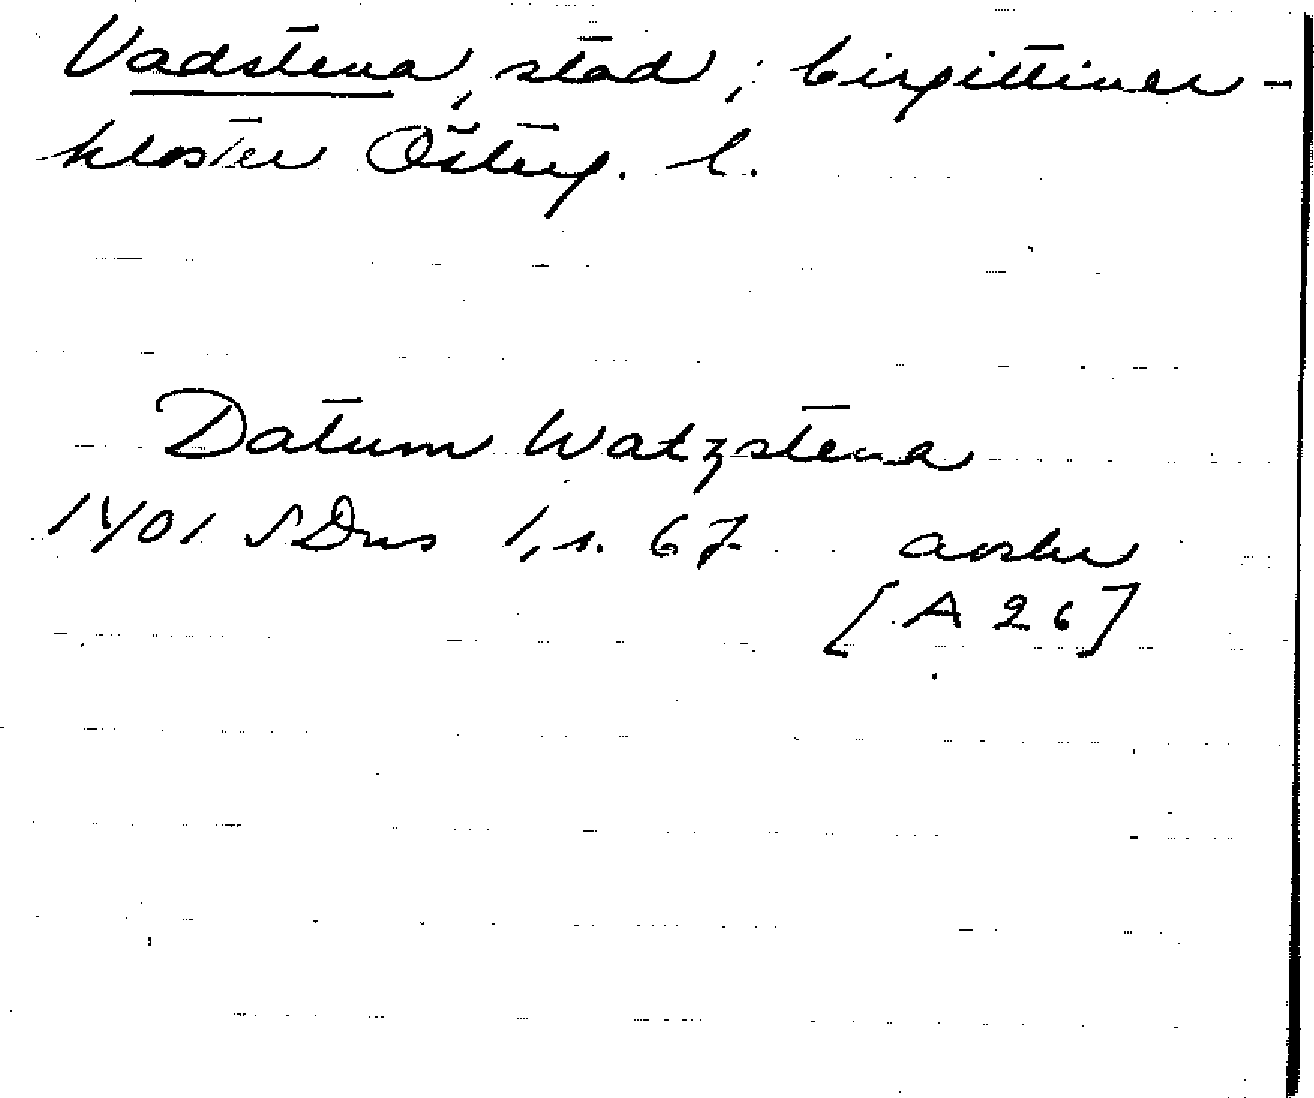 Vadstena, stad; birgittiner-
kloster Österg. l.
Datum Watzstena
1401 SDns 1, s. 67 avskr
[A 26]